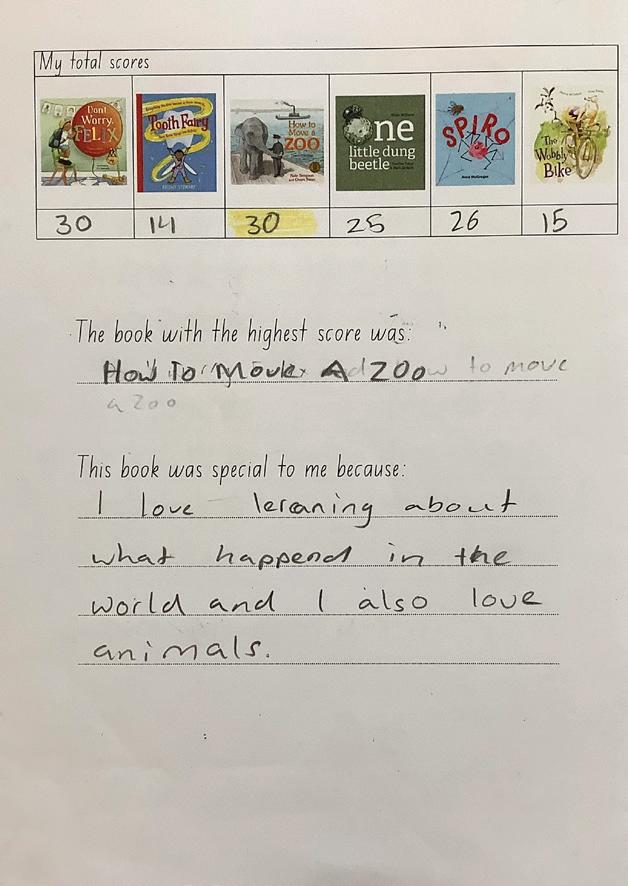 My total scores
Don't Worry, FELIX
Tooth Fairy
How to Move a ZOO
One little dung beetle
SPIRO
Anna McGregor
The Wobbly Bike
30 14 30 25 26 15
The book with the highest score was:
How To Move A ZOo
to move
a Zoo
This book was special to me because:
I love leraning about
what happend in the
world and I also love
animals.